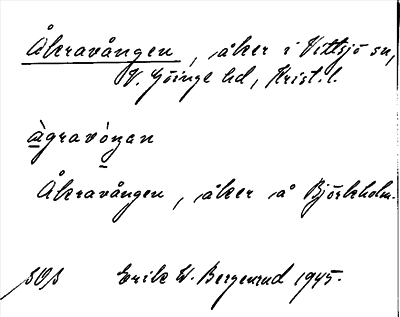 Åkravången, åker i Vittsjö sn,
V. Göinge hd, Krist. l.
àgravòŋan
Åkravången, åker å Björkholm.
SOS Erik W. Bergenrud 1945.